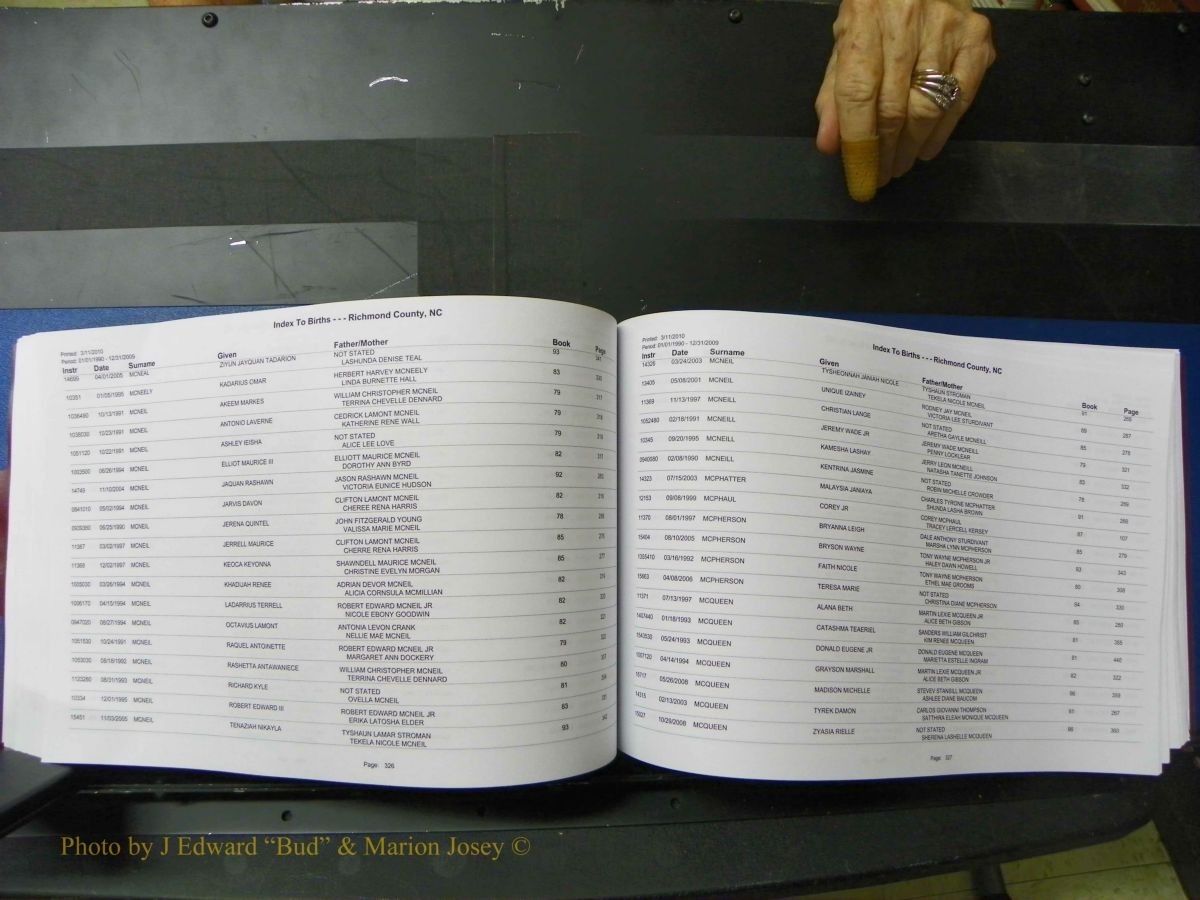 Index To Births - - - Richmond County, NC
Printed: 3/11/2010
Period: 01/01/1990 - 12/31/2009
Instr Date Surname Given Father/Mother Book Page
14695 04/01/2005 MCNEAL ZIYUN JAYQUAN TADARION NOT STATED 93
LASHUNDA DENISE TEAL
10351 01/05/1995 MCNEELY KADARIUS OMAR HERBERT HARVEY MCNEELY 83
LINDA BURNETTE HALL
10/13/1991 MCNEIL AKEEM MARKES WILLIAM CHRISTOPHER MCNEIL 79
TERRINA CHEVELLE DENNARD
10/23/1991 MCNEIL ANTONIO LAVERNE CEDRICK LAMONT MCNEIL 79
KATHERINE RENE WALL
1051120 10/22/1991 MCNEIL ASHLEY IEISHA NOT STATED 79
ALICE LEE LOVE
06/26/1994 MCNEIL ELLIOT MAURICE III ELLIOTT MAURICE MCNEIL 82
DOROTHY ANN BYRD
14745 11/10/2004 MCNEIL JAQUAN RASHAWN JASON RASHAWN MCNEIL 92
VICTORIA EUNICE HUDSON
0841010 05/02/1994 MCNEIL JARVIS DAVON CLIFTON LAMONT MCNEIL 82
CHEREE RENA HARRIS
06/25/1990 MCNEIL JERENA QUINTEL JOHN FITZGERALD YOUNG 78
VALISSA MARIE MCNEIL
11367 03/02/1997 MCNEIL JERRELL MAURICE CLIFTON LAMONT MCNEIL 85
CHERRE RENA HARRIS
11368 12/02/1997 MCNEIL KECCA KEYONNA SHAWNDELL MAURICE MCNEIL 85
CHRISTINE EVELYN MORGAN
03/26/1994 MCNEIL KHADIJAH RENEE ADRIAN DEVOR MCNEIL 82
ALICIA CORNSULA MCMILLIAN
1006170 04/15/1994 MCNEIL LADARRIUS TERRELL ROBERT EDWARD MCNEIL JR 82
NICOLE EBONY GOODWIN
0947020 08/27/1994 MCNEIL OCTAVIUS LAMONT ANTONIA LEVON CRANK 82
NELLIE MAE MCNEIL
10/24/1991 MCNEIL RAQUEL ANTOINETTE ROBERT EDWARD MCNEIL JR 79
MARGARET ANN DOCKERY
1053030 MCNEIL RASHETTA ANTAWANIECE WILLIAM CHRISTOPHER MCNEIL 80
TERRINA CHEVELLE DENNARD
1123280 08/31/1993 MCNEIL RICHARD KYLE NOT STATED 81
OVELLA MCNEIL
10334 12/01/1995 MCNEIL ROBERT EDWARD III ROBERT EDWARD MCNEIL JR 83
ERIKA LATOSHA ELDER
15451 11/03/2005 MCNEIL TENAZIAH NIKAYLA TYSHAUN LAMAR STROMAN 93
TEKELA NICOLE MCNEIL
Page: 326
Index To Births - - - Richmond County, NC
Printed: 3/11/2010
Period: 01/01/1990 - 12/31/2009
Instr Date Surname Given Father/Mother Book Page
14326 03/24/2003 MCNEIL TYSHEONNAH JANIAH NICOLE TYSHAUN STROMAN 91
TEKELA NICOLE MCNEIL
13405 05/08/2001 MCNEIL UNIQUE IZAINEY RODNEY JAY MCNEIL 89 287
VICTORIA LEE STURDIVANT
11369 11/13/1997 MCNEILL CHRISTIAN LANGE NOT STATED 85 278
ARETHA GAYLE MCNEILL
1052480 02/18/1991 MCNEILL JEREMY WADE JR JEREMY WADE MCNEILL 79 321
PENNY LOCKLEAR
10345 09/20/1995 MCNEILL KAMESHA LASHAY JERRY LEON MCNEILL 83 332
NATASHA TANETTE JOHNSON
0940080 02/08/1990 MCNEILL KENTRINA JASMINE NOT STATED 78
ROBIN MICHELLE CROWDER
14323 07/15/2003 MCPHATTER MALAYSIA JANIAYA CHARLES TYRONE MCPHATTER 91
SHUNDA LASHA BROWN
12153 09/08/1999 MCPHAUL COREY JR COREY MCPHAUL 87 107
TRACEY LERCELL KERSEY
11370 08/01/1997 MCPHERSON BRYANNA LEIGH DALE ANTHONY STURDIVANT 85 279
MARSHA LYNN MCPHERSON
15404 08/10/2005 MCPHERSON BRYSON WAYNE TONY WAYNE MCPHERSON JR 93 343
HALEY DAWN HOWELL
1355410 03/16/1992 MCPHERSON FAITH NICOLE TONY WAYNE MCPHERSON 80 308
ETHEL MAE GROOMS
15663 04/08/2006 MCPHERSON TERESA MARIE NOT STATED 94 330
CHRISTINA DIANE MCPHERSON
11371 07/13/1997 MCQUEEN ALANA BETH MARTIN LEXIE MCQUEEN JR 85 280
ALICE BETH GIBSON
1407440 01/18/1993 MCQUEEN CATASHMA TEAERIEL SANDERS WILLIAM GILCHRIST 81 365
KIM RENEE MCQUEEN
1543530 05/24/1993 MCQUEEN DONALD EUGENE JR DONALD EUGENE MCQUEEN 81 440
MARIETTA ESTELLE INGRAM
1007120 04/14/1994 MCQUEEN GRAYSON MARSHALL MARTIN LEXIE MCQUEEN JR 82 322
ALICE BETH GIBSON
16717 05/26/2008 MCQUEEN MADISON MICHELLE STEVEV STANSILL MCQUEEN 96 359
ASHLEE DIANE BAUCOM
14315 02/13/2003 MCQUEEN TYREK DAMON CARLOS GIOVANNI THOMPSON 91 267
SATTHIRA ELEAH MONIQUE MCQUEEN
10/29/2008 MCQUEEN ZYASIA RIELLE NOT STATED 96 360
SHERENA LASHELLE MCQUEEN
Page: 327
Photo by J Edward “Bud” & Marion Josey ©